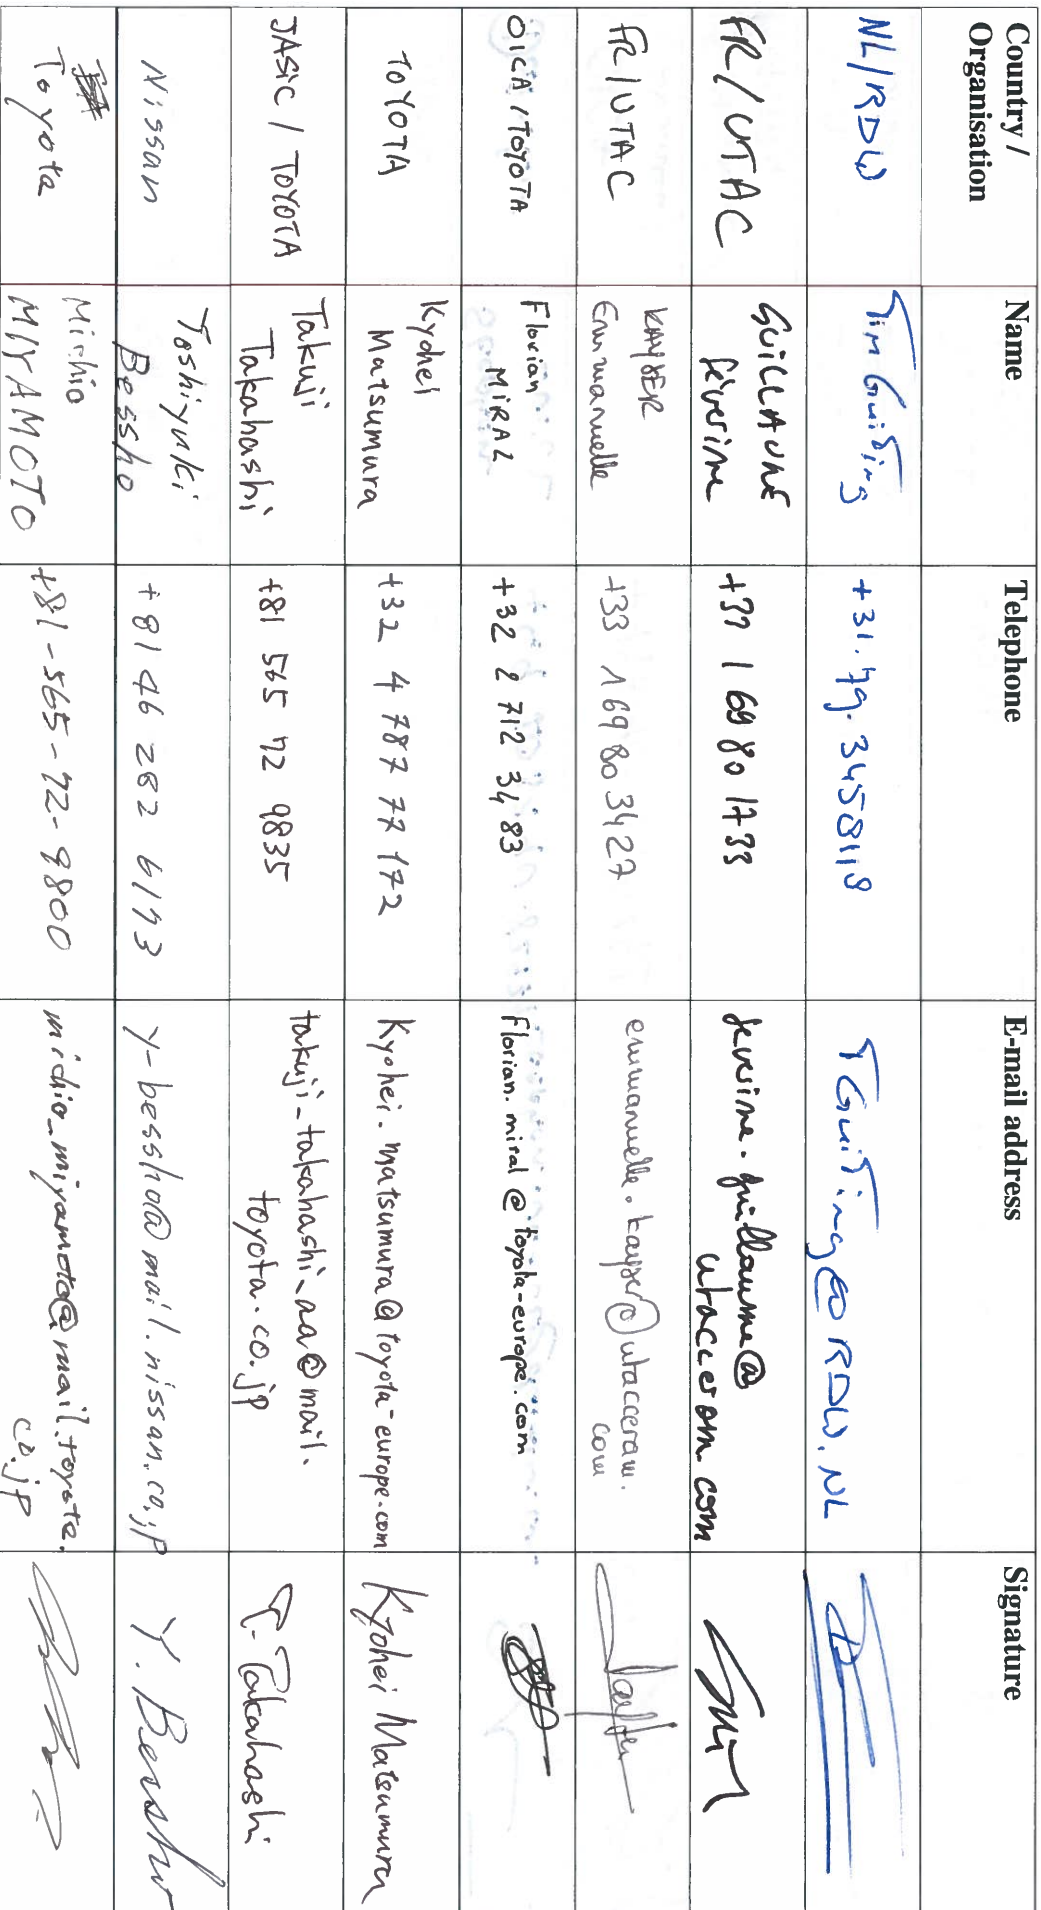 Country /
Organisation
Name
Telephone
E-mail address
Signature
NL/RDW
Tim Guiting
+31.79.3458118
TGuiting@RDW.NL
FR/UTAC
GUILLAUME
Séverine
+33 1 69 80 17 33
severine.guillaume@
utacceram.com
FR/UTAC
KAYSER
Emmanuelle
+33 1 69 80 34 27
emmanuelle.kayser@utacceram.
com
OICA/TOYOTA
Florian
MIRAL
+32 2 712 34 83
Florian.miral@toyota-europe.com
TOYOTA
Kyohei
Matsumura
+32 4 787 77 172
Kyohei.matsumura@toyota-europe.com
Kyohei Matsumura
JASIC / TOYOTA
Takuji
Takahashi
+81 565 72 9835
takuji_takahashi_aa@mail.
toyota.co.jp
T. Takahashi
Nissan
Toshiyuki
Bessho
+81 46 282 6193
y-bessho@mail.nissan.co.jp
Y. Bessho
Toyota
Michio
MIYAMOTO
+81-565-72-9800
michio_miyamoto@mail.toyota.
co.jp